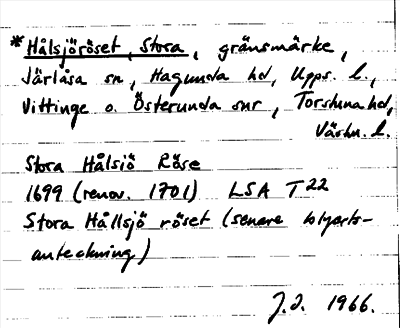 *Hålsjöröset, Stora, gränsmärke,
Järlåsa sn, Hagunda hd, Upps. l.,
Vittinge o. Österunda snr, Torstuna hd,
Västm. l.
Stora Hålsiö Röse
1699 (renov. 1701) LSA T22
Stora Hållsjö röset (senare blyerts-
anteckning)
J.J. 1966.